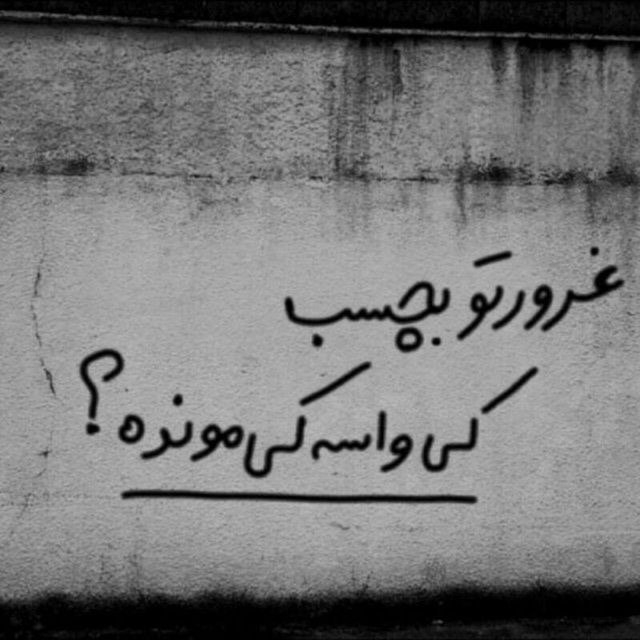 غرورتو بچسب
کی واسه کی مونده؟